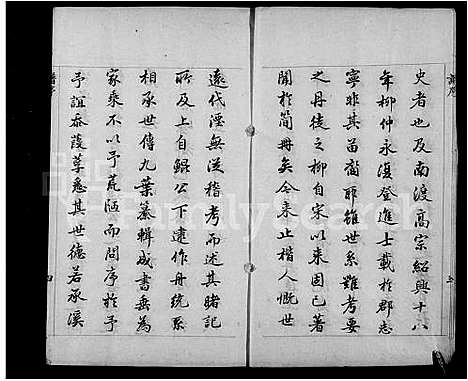 史者也及南渡高宗紹興十八
年柳仲永復登進士載於郡志
寧非其苗裔耶雖世系難考要
之丹徒之柳自宋以來固已著
聞於簡冊矣令來止楷人慨世
遠代湮無從稽考而述其睹記
所及上自鯤公下逮作舟統系
相承世傳九葉纂輯成書無為
家乘不以予荒陋而問序於予
予誼忝葭莩悉其世德若承溪
FamilySearch